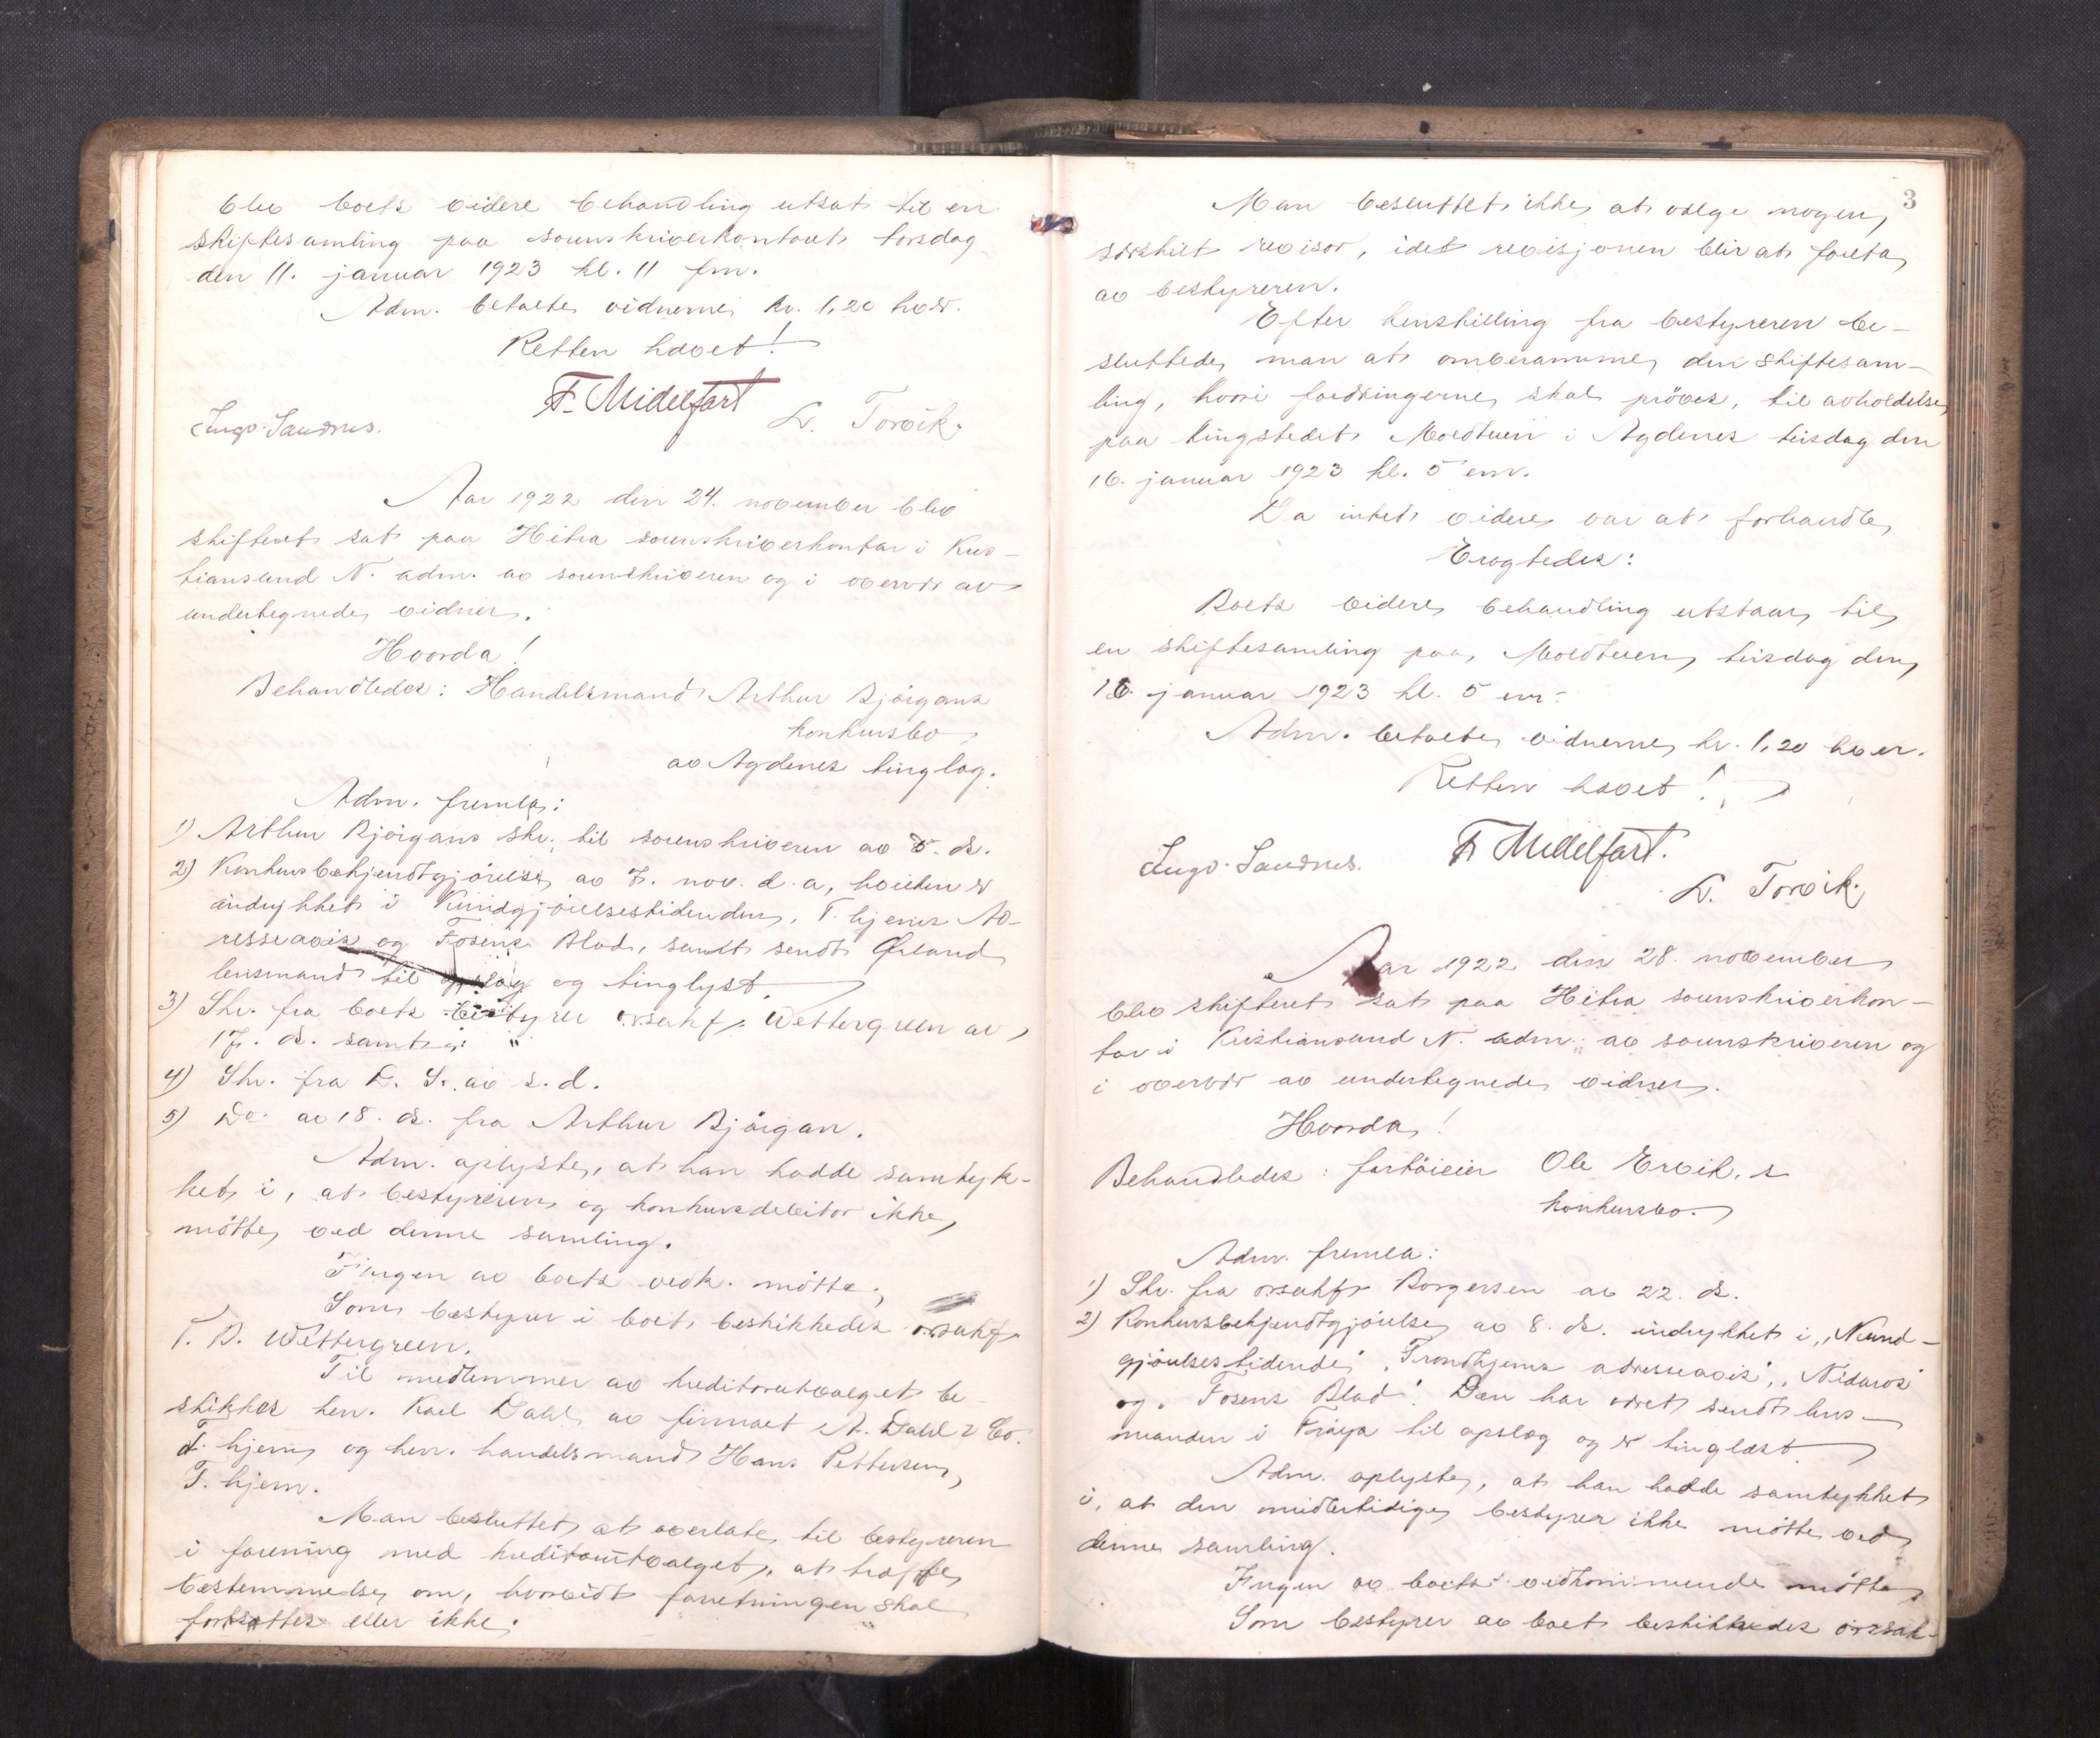 blev boets videre behandling utsat til en
skiftesamling paa sorenskriverkontoret torsdag
den 11. januar 1923 kl. 11 fm.
Adm. betalte vidnerne kr. 1,20 hver.
Retten hævet!
F. Midelfart
Ingv. Sandnes. L. Torvik.
Aar 1922 den 24. november blev
skifteret sat paa Hitra sorenskriverkontor i Kris-
tiansund N. adm. av sorenskriveren og i overvær av
undertegnede vidner.
Hvorda!
Behandledes: Handelsmand Arthur Bjørgans
konkursbo
av Agdenes tinglag.
Adm. fremla:
1) Arthur Bjørgans skr. til sorenskriveren av 5. ds.
2) Konkursbekjendtgjørelse av 7. nov. d. a, hvilken er
indrykket i Kundgjørelsestidenden, T. hjems Ad-
resseavis og Fosens Blad, samt sendt Ørland
lensmand til opslag og tinglyst.
3) Skr. fra boets bestyrer o.r.sakf. Wettergreen av
17. ds. samt
4) Skr. fra D. S. av s. d.
5) Do. av 18. ds. fra Arthur Bjørgan.
Adm. oplyste, at han hadde samtyk-
ket i, at bestyreren og konkursdebitor ikke
møtte ved denne samling.
Ingen av boets vedk. møtte.
Som bestyrer i boet beskikkedes o.r.sakf.
T. B. Wettergreen.
Til medlemmer av kreditorutvalget be-
skikkes herr. Karl Dahl av firmaet A. Dahl & Co.
T. hjem og herr. handelsmand Hans Pettersen,
T. hjem.
Man besluttet at overlate til bestyreren
i forening med kreditorutvalget, at træffe
bestemmelse om, hvorvidt forretningen skal
fortsættes eller ikke.
3
Man besluttet ikke at vælge nogen
særskilt revisor, idet revisjonen blir at foreta
av bestyreren.
Efter henstilling fra bestyreren be-
sluttede man at omberamme den skiftesam-
ling, hvori fordringerne skal prøves, til avholdelse
paa tingstedet Moldtuen i Agdenes tirsdag den
16. januar 1923 kl. 5 em.
Da intet videre var at forhandle
Eragtedes:
Boets videre behandling utstaar til
en skiftesamling paa Moldtuen tirsdag den
16. januar 1923 kl. 5 em.
Adm. betalte vidnerne kr. 1,20 hver.
Retten hævet!
Ingv. Sandnes. F. Midelfart.
L. Torvik.
Aar 1922 den 28. november
blev skifteret sat paa Hitra sorenskriverkon-
tor i Kristiansund N. adm. av sorenskriveren og
i overvær av undertegnede vidner.
Hvorda!
Behandledes: fartøieier Ole Ervik,s
konkursbo.
Adm. fremla:
1) Skr. fra o.r.sakf. Borgersen av 22. ds.
2) Konkursbekjendtgjørelse av 8. ds. indrykket i „Kund-
gjørelsestidende", „Trondhjems adresseavis", „Nidaros"
og „Fosens Blad". Den har været sendt lens-
manden i Frøya til opslag og er tinglæst.
Adm. oplyste, at han hadde samtykket
i, at den midlertidige bestyrer ikke møtte ved
denne samling.
Ingen av boets vedkommende møtte.
Som bestyrer av boet beskikkedes o.r.sak-